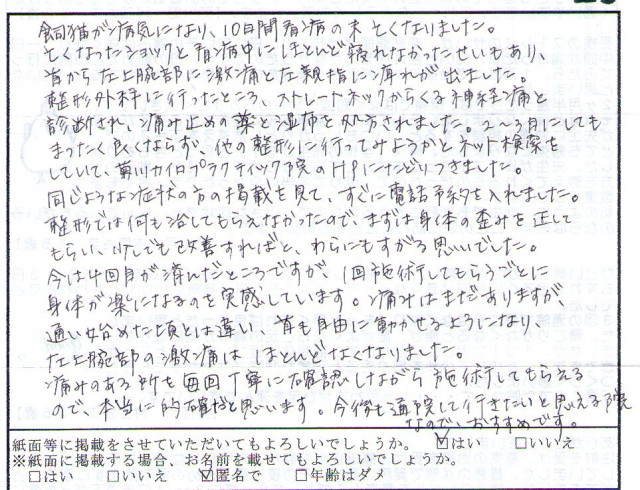 飼猫が病気になり、10日間看病の末亡くなりました。
亡くなったショックと看病中にほとんど寝れなかったせいもあり、
首から左上腕部に激痛と左親指に痺れが出ました。
整形外科に行ったところ、ストレートネックからくる神経痛と
診断され、痛み止めの薬と湿布を処方されました。2〜3日しても
まったく良くならず、他の整形に行ってみようかとネット検索を
していて、菊川カイロプラクティック院のHPにたどりつきました。
同じような症状の方の掲載を見て、すぐに電話予約を入れました。
整形では何も治してもらえなかったので、まずは身体の歪みを正して
もらい、少しでも改善すればと、わらにもすがる思いでした。
今は4回目が済んだところですが、1回施術してもらうごとに
身体が楽になるのを実感しています。痛みはまだありますが、
通い始めた頃とは違い、首も自由に動かせるようになり、
左上腕部の激痛はほとんどなくなりました。
痛みのある所を毎回丁寧に確認しながら施術してもらえる
ので、本当に的確だと思います。今後も通院して行きたいと思える院
なので、おすすめです。
紙面等に掲載をさせていただいてもよろしいでしょうか。 ☑はい □いいえ
※紙面に掲載する場合、お名前を載せてもよろしいでしょうか。
□はい □いいえ ☑匿名で □年齢はダメ